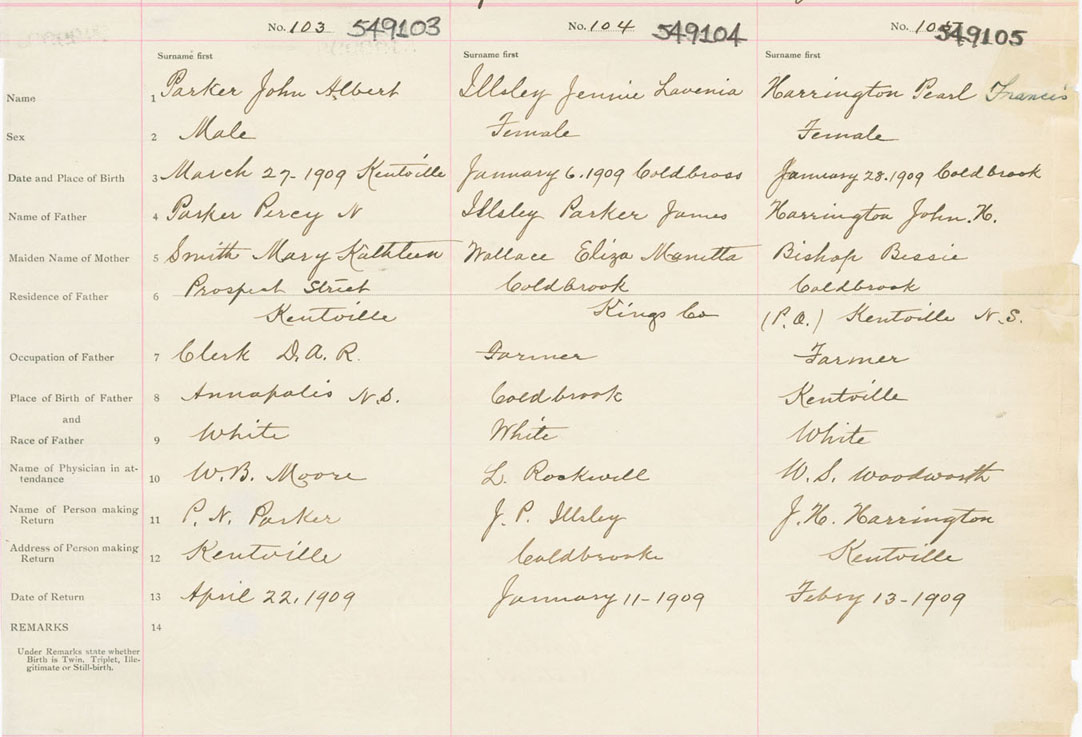 No. 103 549103 No. 104 549104 No. 105 549105
Surname first Surname first Surname first
Name 1 Parker John Albert Illsley Jennie Lavenia Harrington Pearl Francis
Sex 2 Male Female Female
Date and Place of Birth 3 March 27-1909 Kentville January 6.1909 Coldbrook January 28.1909 Coldbrook
Name of Father 4 Parker Percy N Illsley Parker James Harrington John.H.
Maiden Name of Mother 5 Smith Mary Kathleen Wallace Eliza Manetta Bishop Bessie
Residence of Father 6 Prospect Street Coldbrook Coldbrook
Kentville Kings Co (P.O.) Kentville N.S.
Occupation of Father 7 Clerk D.A.R. Farmer Farmer
Place of Birth of Father 8 Annapolis N.S. Coldbrook Kentville
and
Race of Father 9 White White White
Name of Physician in at-
tendance 10 W.B. Moore L. Rockwell W.S. Woodworth
Name of Person making
Return 11 P.N. Parker J.P. Illsley J.H. Harrington
Address of Person making
Return 12 Kentville Coldbrook Kentville
Date of Return 13 April 22, 1909 January 11-1909 Febry 13-1909
REMARKS 14
Under Remarks state whether
Birth is Twin, Triplet, Ille-
gitimate or Still-birth.